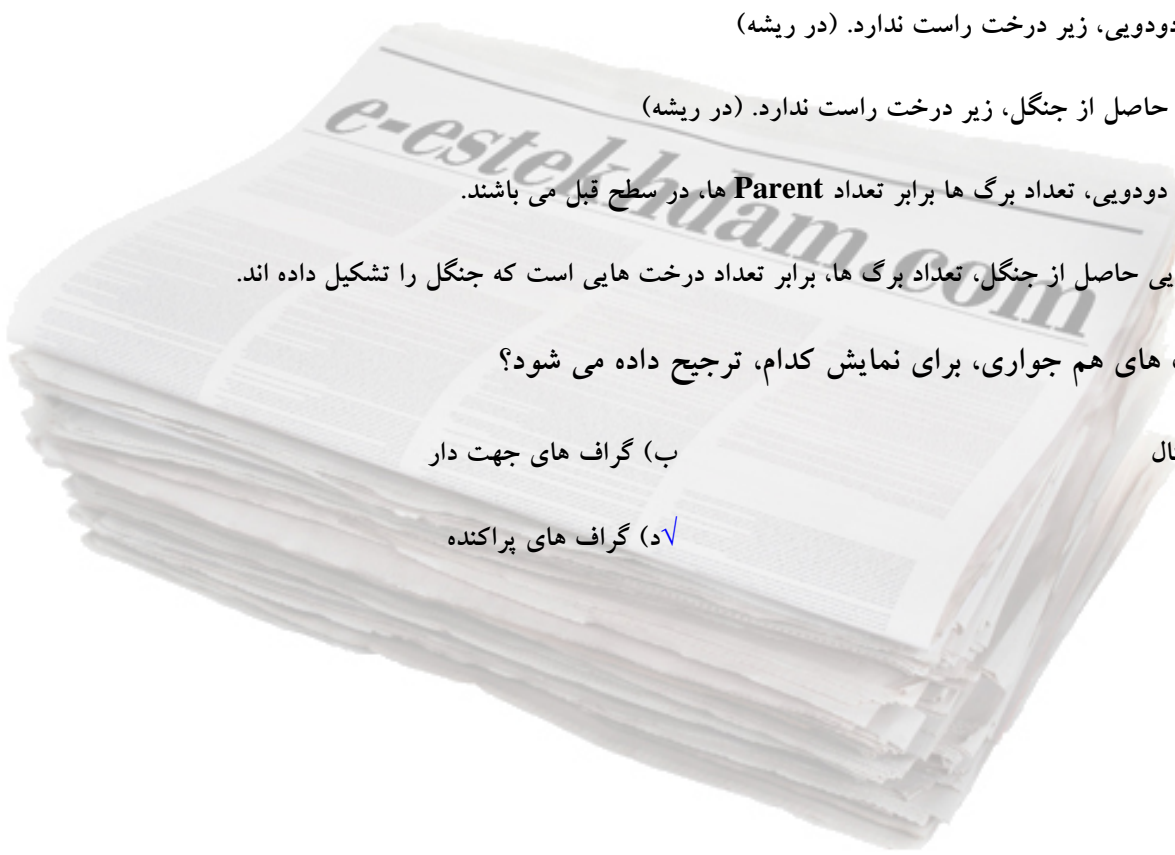 دودویی، زیر درخت راست ندارد. (در ریشه)
حاصل از جنگل، زیر درخت راست ندارد. (در ریشه)
e-estekhdam.com
دودویی، تعداد برگ ها برابر تعداد Parent ها، در سطح قبل می باشند.
حاصل از جنگل، تعداد برگ ها، برابر تعداد درخت هایی است که جنگل را تشکیل داده اند.
های هم جواری، برای نمایش کدام، ترجیح داده می شود؟
ب) گراف های جهت دار
√د) گراف های پراکنده